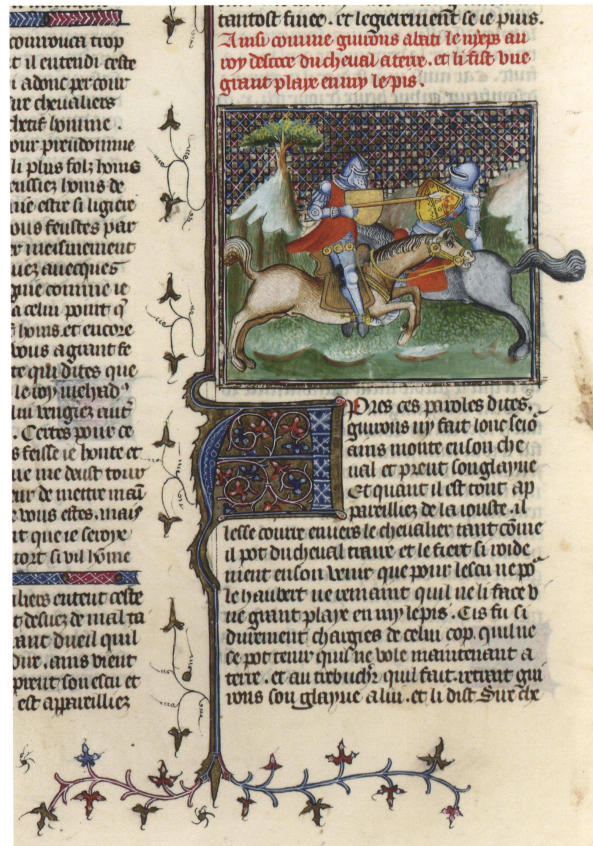 courrouca trop
t il entendi ceste
i adonc per cour
chevaliers
chetif homme .
our preudomme
li plus folz homs
eussiez homs de
nie estre si ligiere
ous feustes par
r meismement
uez auecques
gne comme ie
a celui point q̄
homs . et encore
vous agrant fe
te qui dites que
le roy melyad
lui vengiez aut
. Certes pour ce
s feisse ie honte et
ne me deust tour
eur de mettre mau
e vous estes . mais
rt que ie seroye
tort si vil hōme
liers entent ceste
t desuez de mal ta
ant dueil quil
dire . ains vient
prent son escu et
est appareilliez
tantost finee . et legierement se ie puis .
Ainsi comme guirons abati le nieps au
roy descoce du cheval a terre . et li fist vne
grant playe enmy le pis .
Apres ces paroles dites .
guirons ny fait lonc seio
ains monte en son che
ual et prent son glayue
Et quant il est tout ap
pareilliez de la iouste . il
lesse courre enuers le cheualier tant cōme
il pot du cheual traire et le fiert si roide
ment en son venir que pour lescu ne po
le haubert ne remaint quil ne li face v
ne grant playe en my le pis . Cis fu si
durement chargies de celui cop . quil ne
se pot tenir quil ne vole maintenant a
terre . et au trebuchr quil fait . retrait gui
rons son glayue a lui . et li dist Sire che